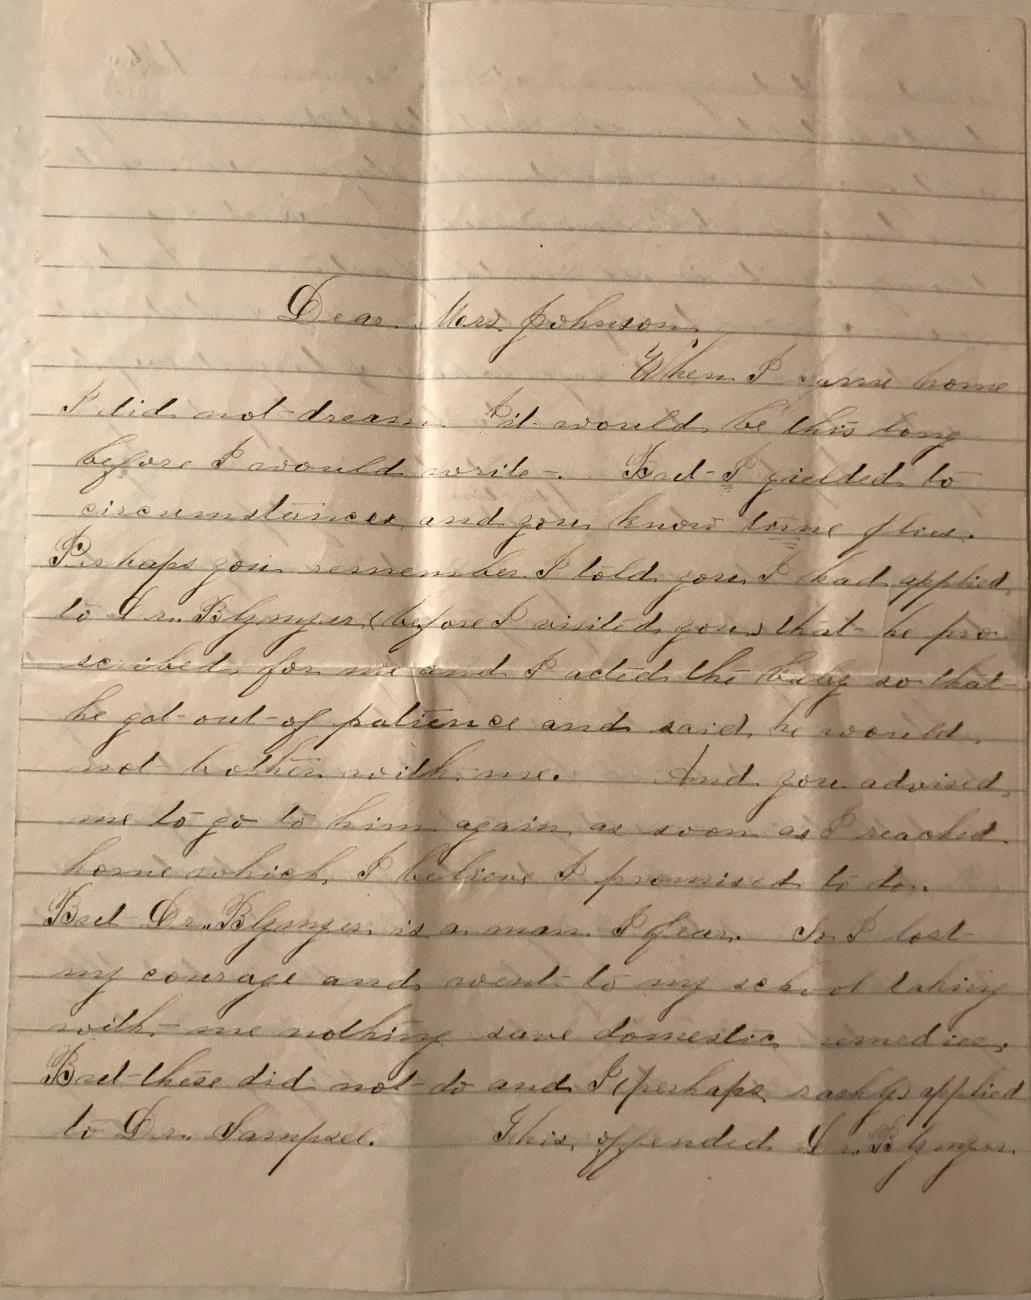 Dear Mrs Johnson.
When I came home
I did not dream it would be this long
before I would write. But I yielded to
circumstances and you know time flies.
Perhaps you remember I told you I had applied
to Dr. (before I visited you) that he pre-
scribed for me and I acted the baby so that
he got out of patience and said he would
not bother with me. And you advised
me to go to him again as soon as I reached
home which I believe I promised to do.
But Dr. is a man I fear. So I lost
my courage and went to my school taking
with me nothing save domestic remedies.
But these did not do and I (perhaps rashly) applied
to Dr. Sampsel. This offended Dr.